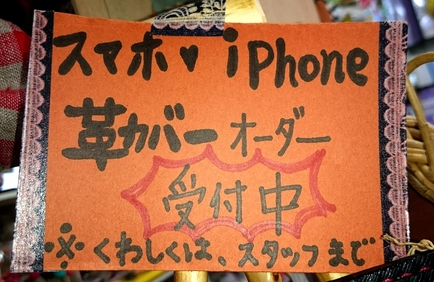 スマホ♥iPhone
革カバーオーダー
受付中
※くわしくは、スタッフまで